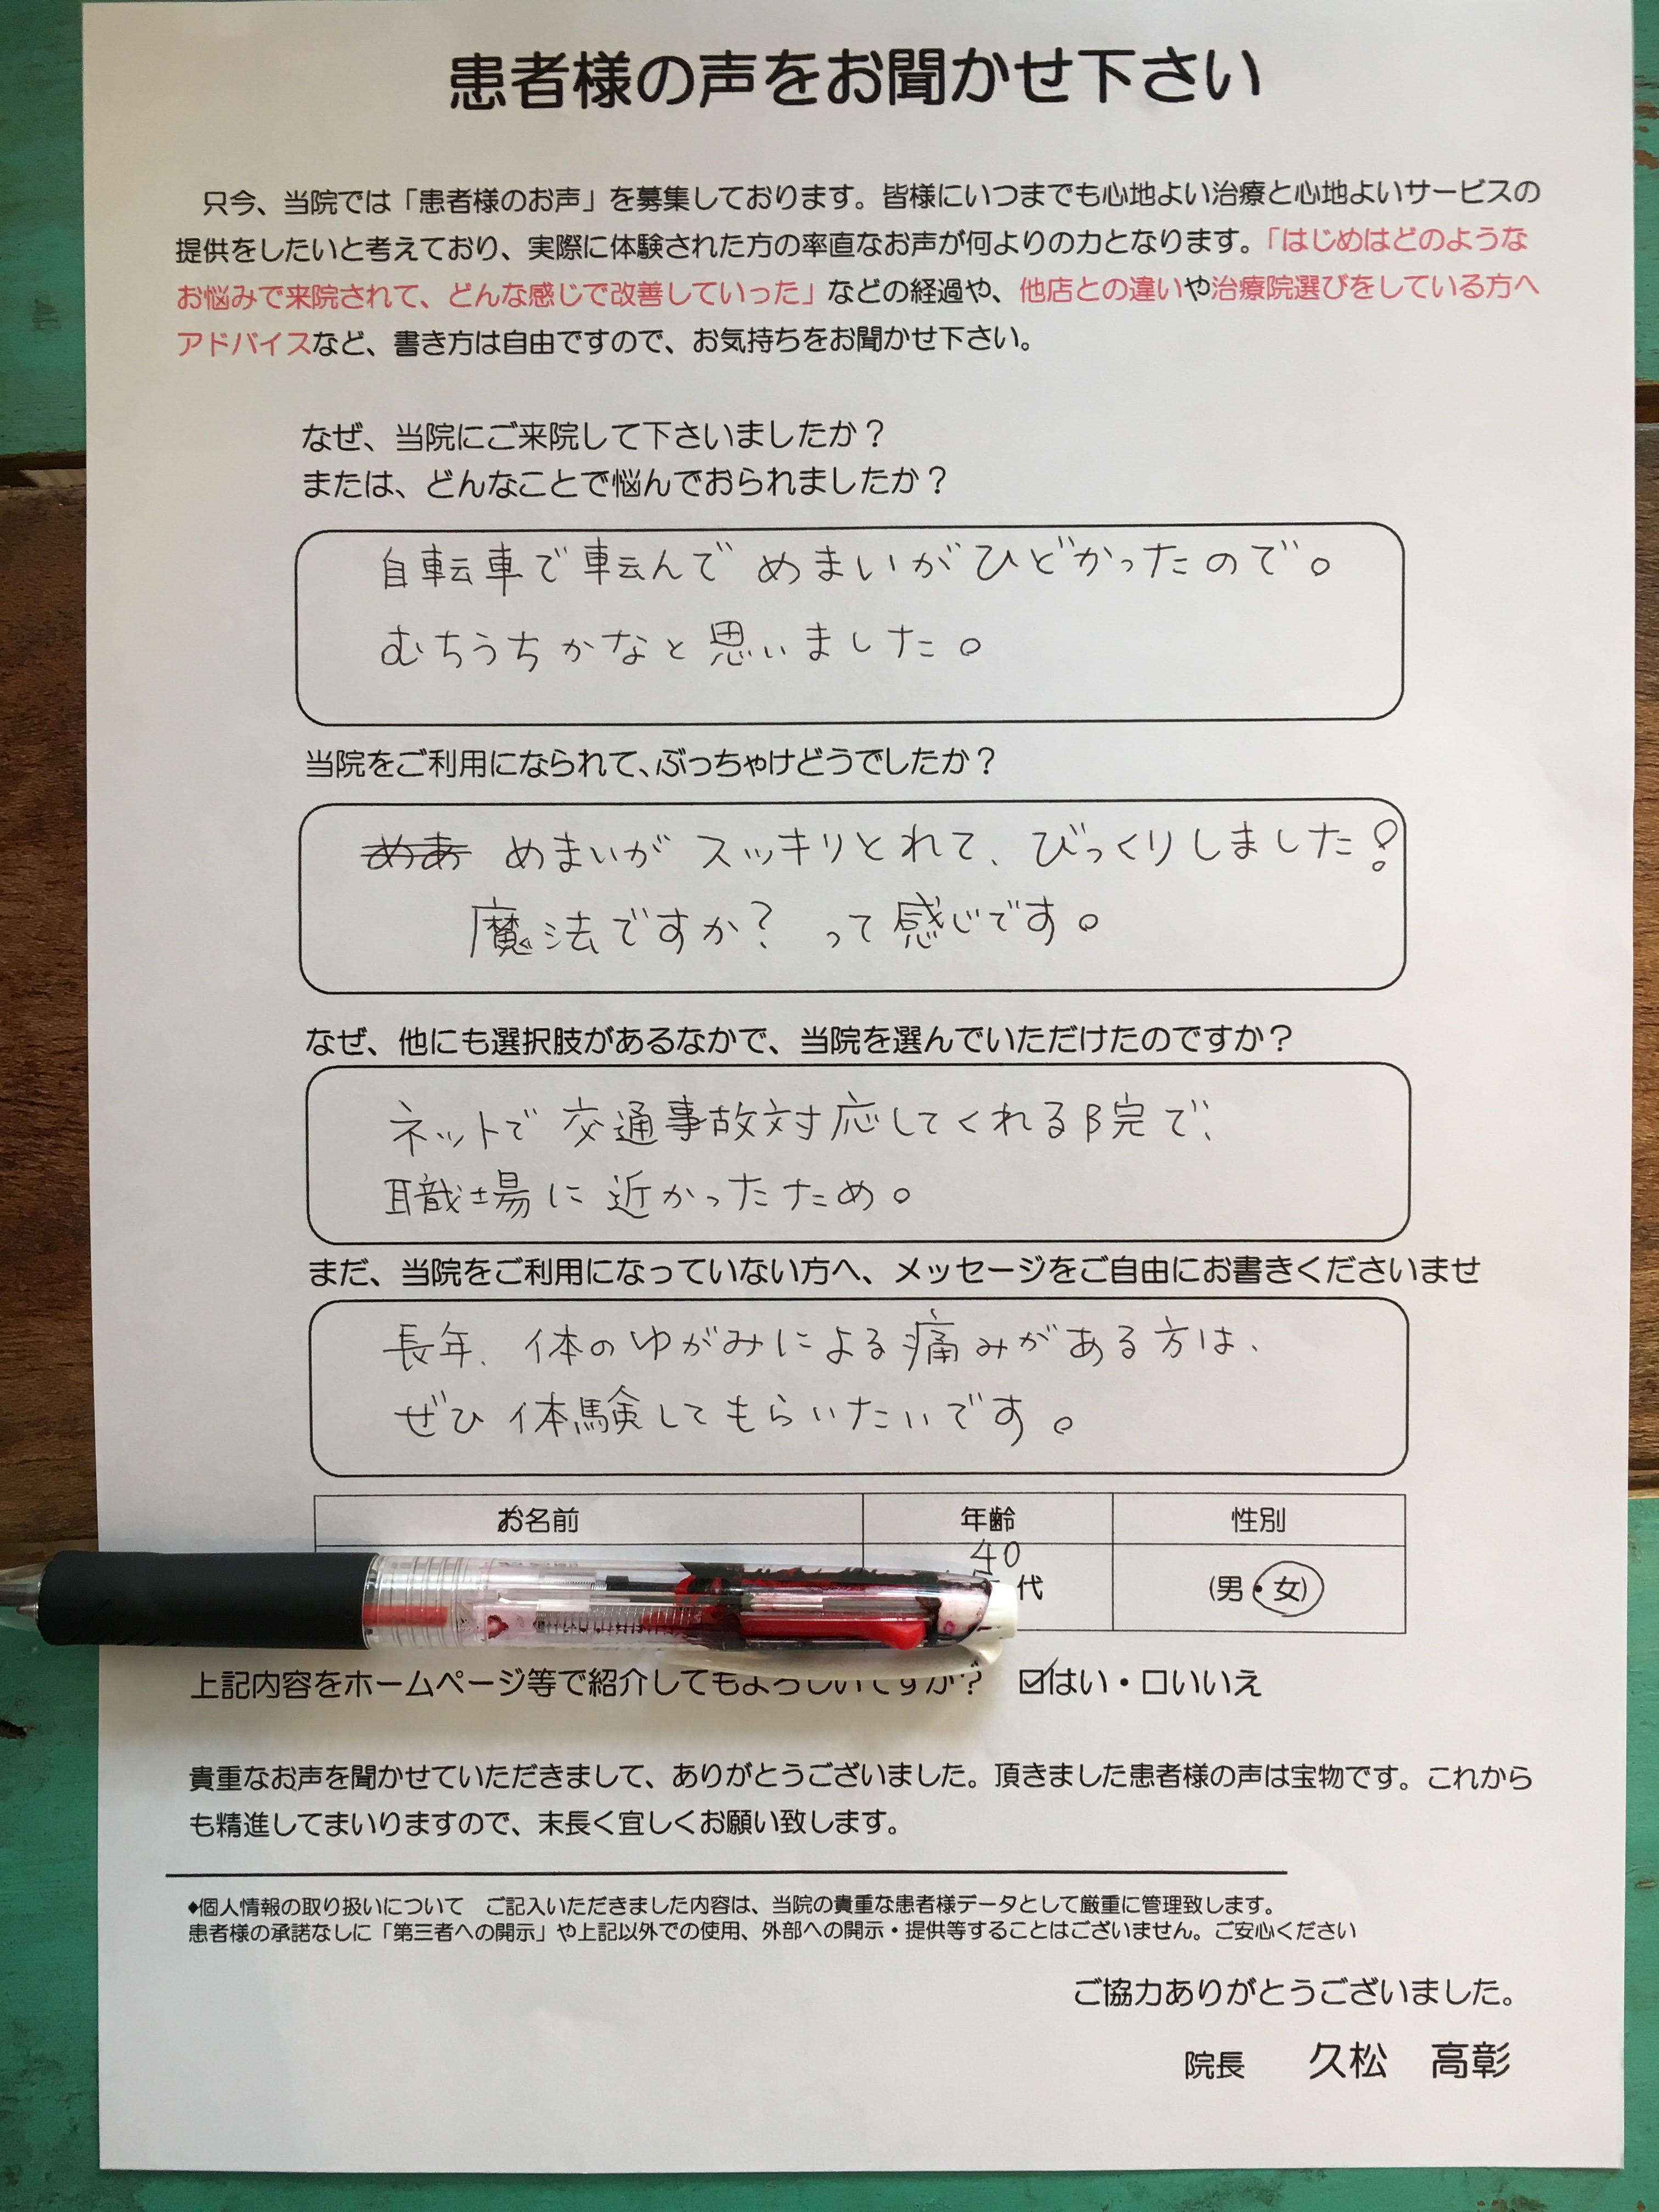 患者様の声をお聞かせ下さい
只今、当院では「患者様のお声」を募集しております。皆様にいつまでも心地よい治療と心地よいサービスの
提供をしたいと考えており、実際に体験された方の率直なお声が何よりの力となります。「はじめはどのような
お悩みで来院されて、どんな感じで改善していった」などの経過や、他店との違いや治療院選びをしている方へ
アドバイスなど、書き方は自由ですので、お気持ちをお聞かせ下さい。
なぜ、当院にご来院して下さいましたか？
または、どんなことで悩んでおられましたか？
自転車で転んでめまいがひどかったので。
むちうちかなと思いました。
当院をご利用になられて、ぶっちゃけどうでしたか？
めまいがスッキリとれて、びっくりしました！
魔法ですか？って感じです。
なぜ、他にも選択肢があるなかで、当院を選んでいただけたのですか？
ネットで交通事故対応してくれる院で、
職場に近かったため。
まだ、当院をご利用になっていない方へ、メッセージをご自由にお書きくださいませ
長年、体のゆがみによる痛みがある方は、
ぜひ体験してもらいたいです。
お名前 年齢 性別
40
代 (男・女)
上記内容をホームページ等で紹介してもよろしいですか？ ☑はい・口いいえ
貴重なお声を聞かせていただきまして、ありがとうございました。頂きました患者様の声は宝物です。これから
も精進してまいりますので、末長く宜しくお願い致します。
♦個人情報の取り扱いについて ご記入いただきました内容は、当院の貴重な患者様データとして厳重に管理致します。
患者様の承諾なしに「第三者への開示」や上記以外での使用、外部への開示・提供等することはございません。ご安心ください
ご協力ありがとうございました。
院長 久松 高彰